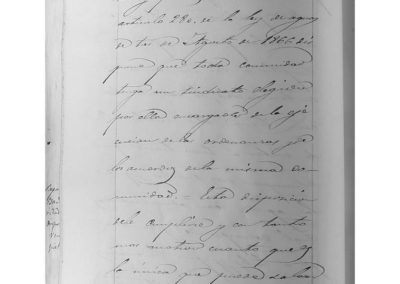 artículo 28. de la ley de aguas
de tres de Agosto de 1866 dis
pone que toda comunidad
tenga un sindicato elegido
por ella encargado de la eje
cucion de las ordenanzas y de
los acuerdos de la misma co-
munidad. - Esta disposicion
debe cumplirse y con tanto
mas motivo cuanto que es
la única que puede